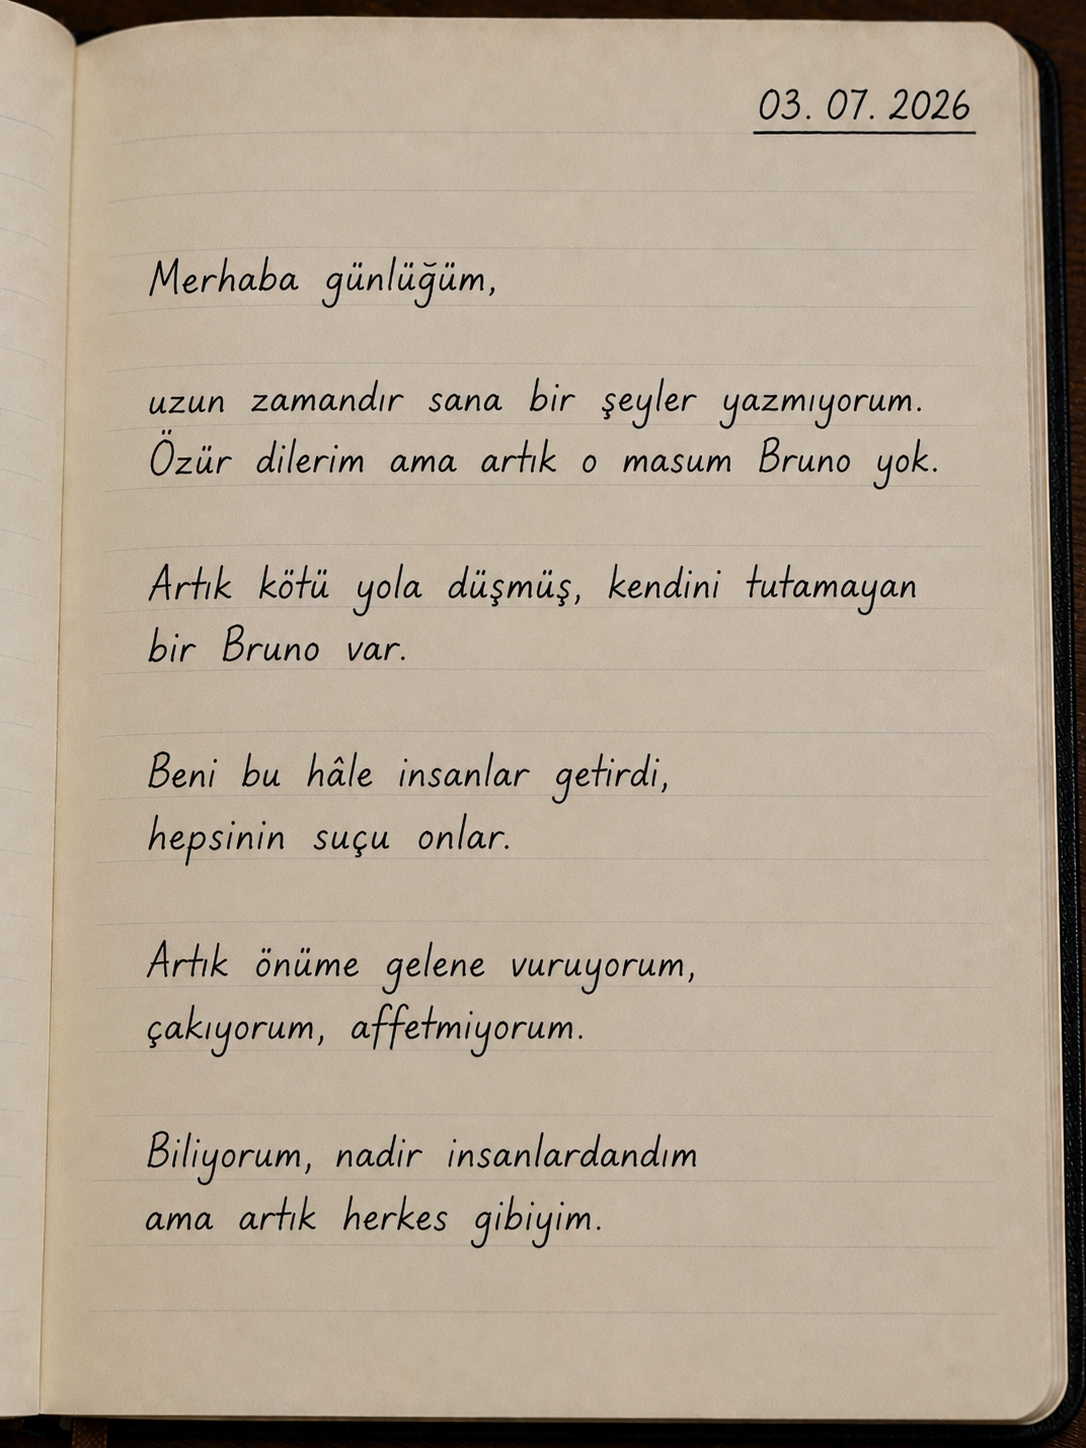 03. 07. 2026
Merhaba günlüğüm,
uzun zamandır sana bir şeyler yazmıyorum.
Özür dilerim ama artık o masum Bruno yok.
Artık kötü yola düşmüş, kendini tutamayan
bir Bruno var.
Beni bu hâle insanlar getirdi,
hepsinin suçu onlar.
Artık önüme gelene vuruyorum,
çakıyorum, affetmiyorum.
Biliyorum, nadir insanlardandım
ama artık herkes gibiyim.